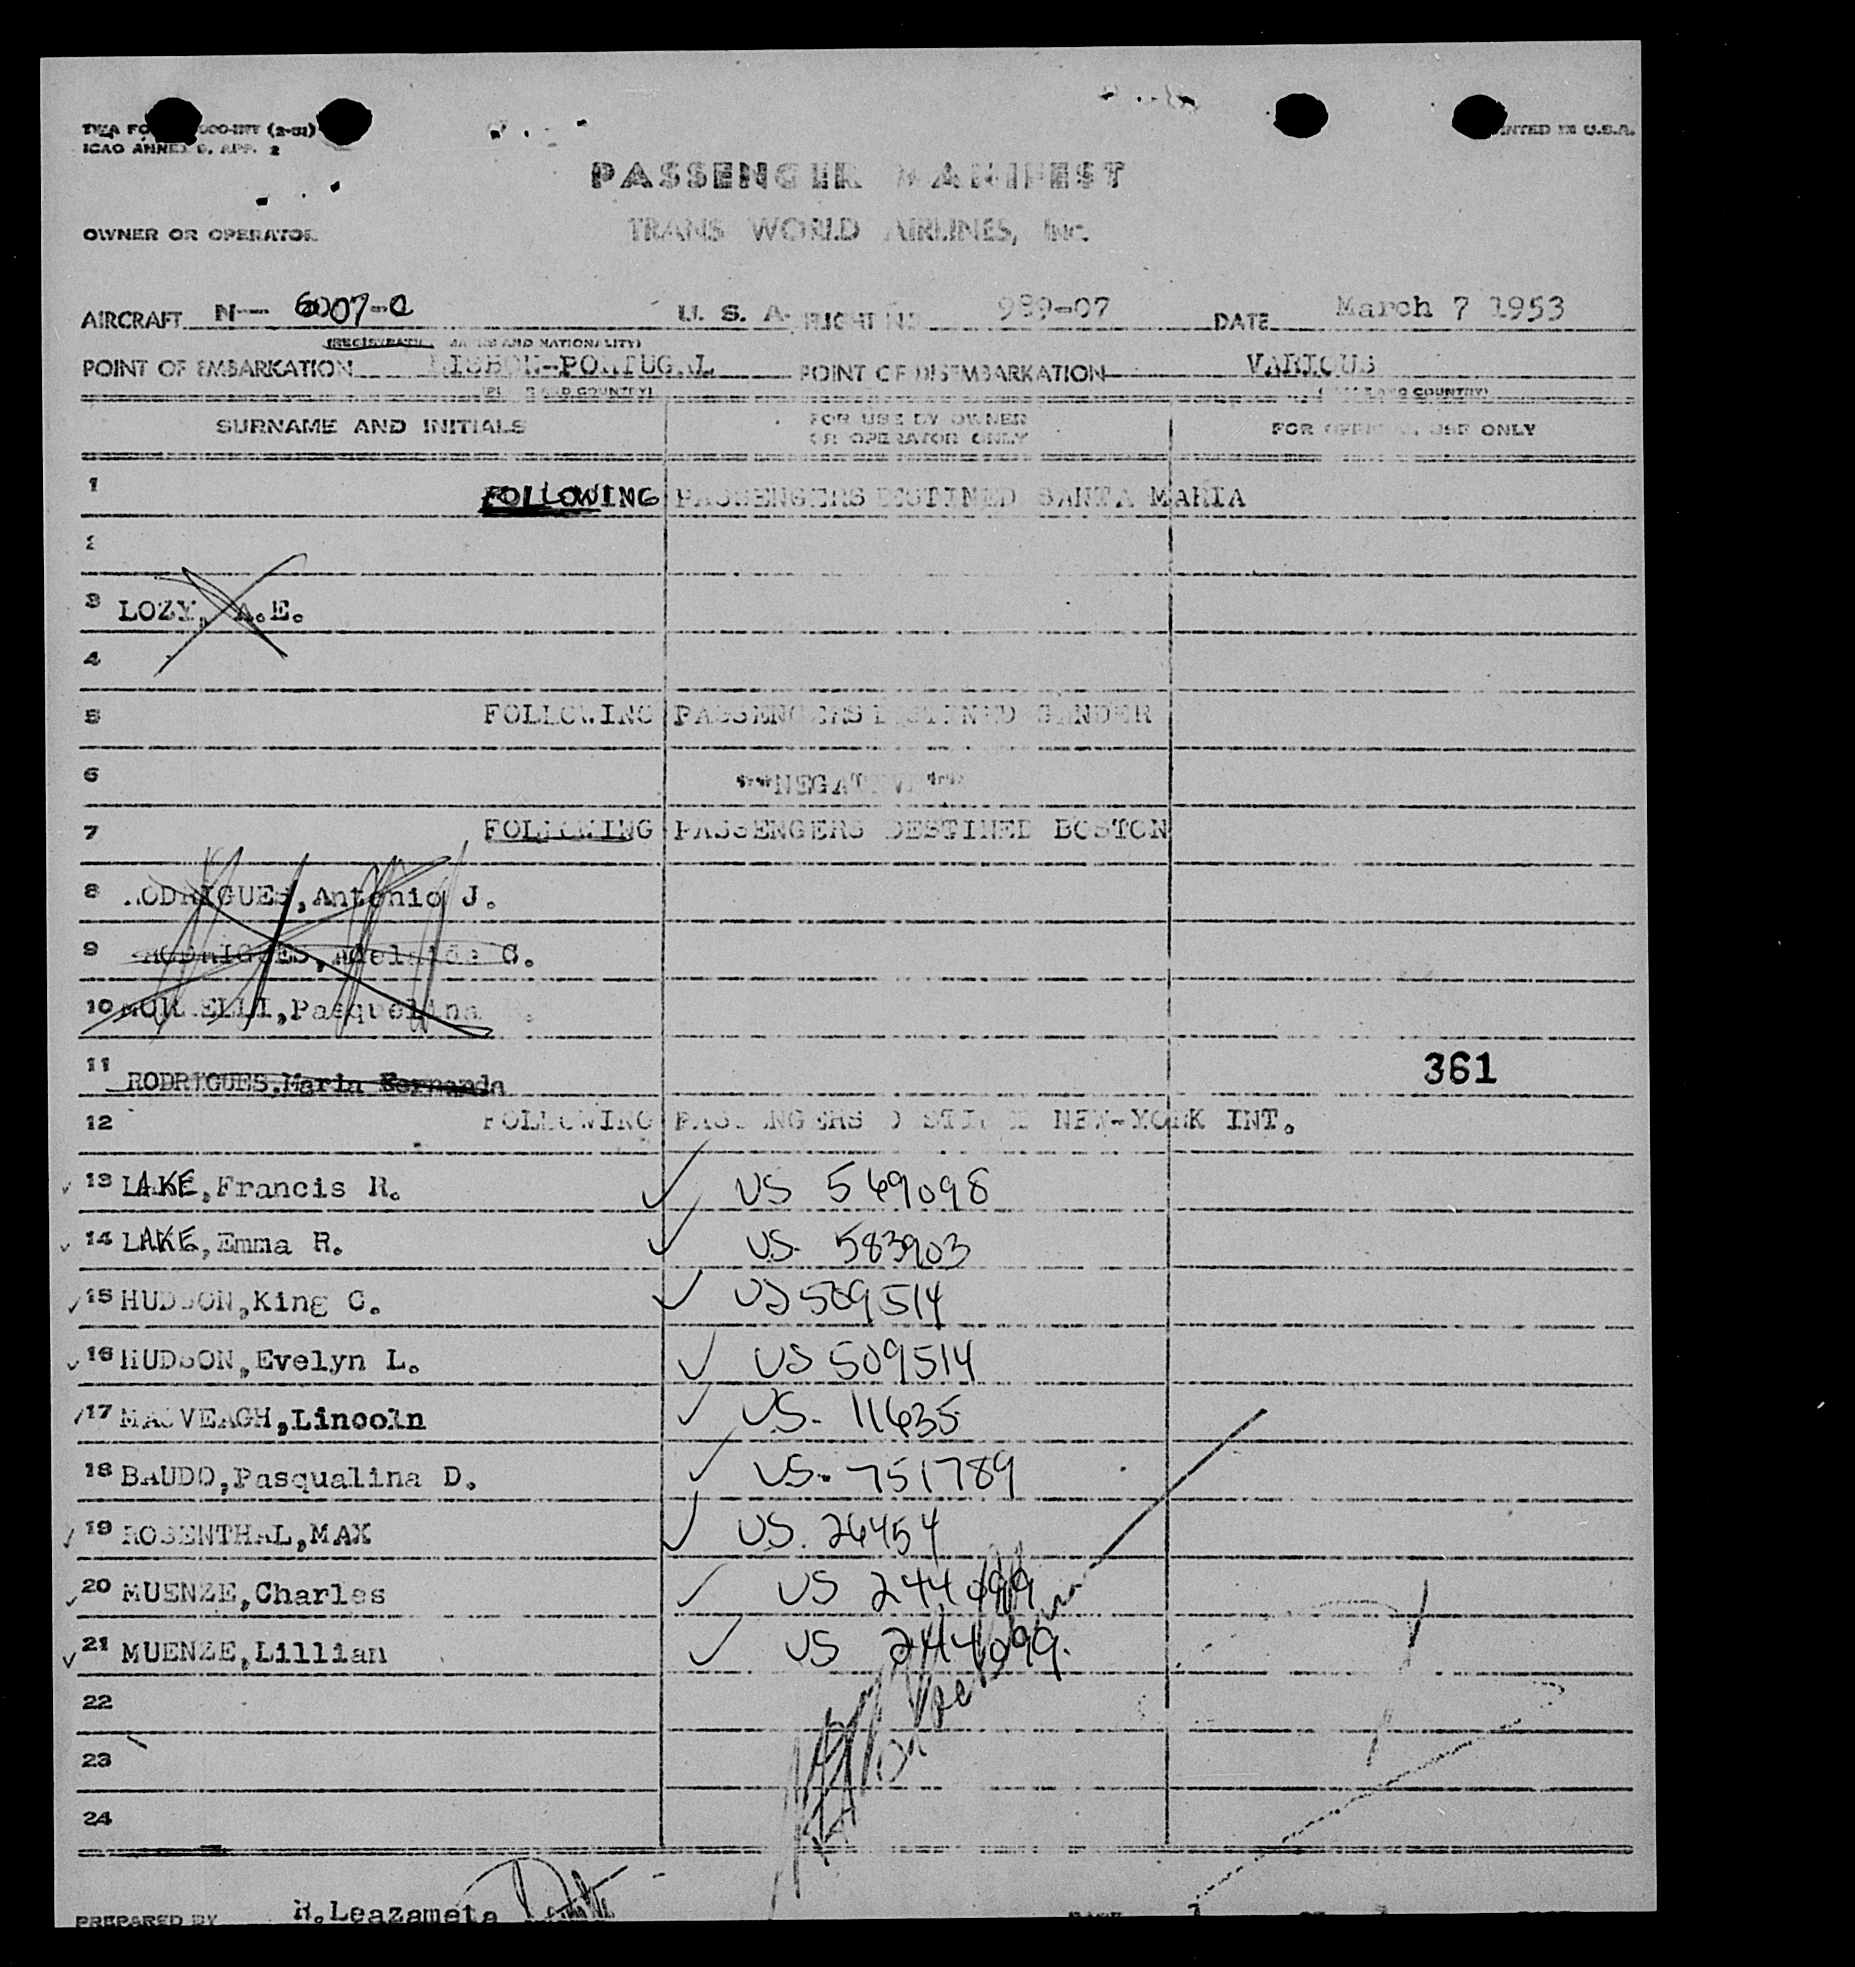 TWA FO 000-INT (2-51)
ICAO ANNEX 9, APP. 2
PRINTED IN U.S.A.
PASSENGER MANIFEST
OWNER OR OPERATOR
TRANS WORLD AIRLINES, Inc.
AIRCRAFT N- 6007-C U. S. A. FLIGHT NO 989-07 DATE March 7 1953
(REGISTRATION MARKS AND NATIONALITY)
POINT OF EMBARKATION LISBON-PORTUGAL POINT OF DISEMBARKATION VARIOUS
(PLACE AND COUNTRY) (PLACE AND COUNTRY)
SURNAME AND INITIALS FOR USE BY OWNER OR OPERATOR ONLY FOR OFFICIAL USE ONLY
1 FOLLOWING PASSENGERS DESTINED SANTA MARIA
2
3 LOZY, A.E.
4
5 FOLLOWING PASSENGERS DESTINED GANDER
6 **NEGATIVE**
7 FOLLOWING PASSENGERS DESTINED BOSTON
8 RODRIGUES,Antonio J.
9 RODRIGUES,Adelaide C.
10 Pasquelina
11 RODRIGUES,Maria Fernanda 361
12 FOLLOWING PASSENGERS DESTINED NEW-YORK INT.
13 LAKE,Francis R. US 569098
14 LAKE,Emma R. U.S. 583903
15 HUDSON,King C. US 509514
16 HUDSON,Evelyn L. US 509514
17 MACVEAGH,Lincoln U.S. 11635
18 BAUDO,Pasqualina D. US. 751789
19 ROSENTHAL,MAX US. 26454
20 MUENZE,Charles US 244099
21 MUENZE,Lillian US 244099.
22
23
24
PREPARED BY R.Leazameta PAGE 1 OF